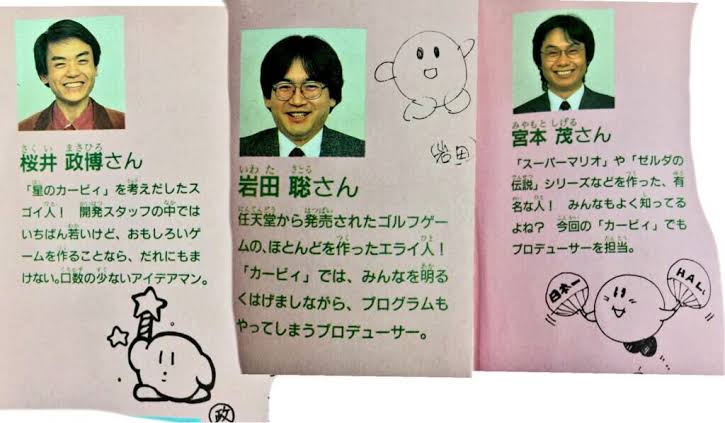 さくい まさひろ
桜井 政博さん
「星のカービィ」を考えだしたス
ゴイ人! 開発スタッフの中では
いちばん若いけど、おもしろいゲ
ームを作ることなら、だれにもま
けない。口数の少ないアイデアマン。
政
岩田
いわた さとる
岩田 聡さん
任天堂から発売されたゴルフゲー
ムの、ほとんどを作ったエライ人!
「カービィ」では、みんなを明る
くはげましながら、プログラムも
やってしまうプロデューサー。
みやもと しげる
宮本 茂さん
「スーパーマリオ」や「ゼルダの
伝説」シリーズなどを作った、有
名な人! みんなもよく知ってる
よね? 今回の「カービィ」でも
プロデューサーを担当。
日本一
HAL